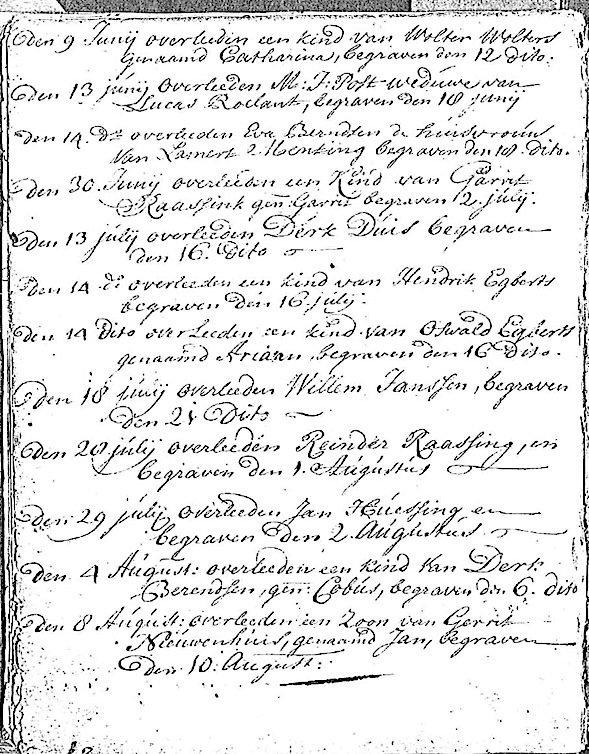 den 9 Junij overleeden een kind van Wolter Wolters
genaamd Catharina, begraven den 12 dito.
den 13 junij overleeden M: J: Post weduwe van
Lucas Roelant, begraven den 18 junij
den 14. do overleeden Eva Berndsen de huisvrouw
van Lamert Menting begraven den 18. dito.
den 30 Junij overleeden een Kind van Garrit
Raassink gen: Garrit begraven 2. julij.
den 13 julij overleeden Derk Duis begraven
den 16. Dito
den 14 do overleeden een kind van Hendrik Egberts
begraven den 16 julij.
den 14 Dito overleeden een kind van Oswald Egberts
genaamd Ariaan, begraven den 16 Dito.
den 18 junij overleeden Willem Janssen, begraven
den 21 Dito
den 28 julij overleeden Reinder Raassing, en
begraven den 1. Augustus
den 29 julij overleeden Jan Huessing en
begraven den 2. Augustus
den 4 August: overleeden een kind van Derk
Berendsen, gen: Cobus, begraven den 6. dito
den 8 August: overleeden een Zoon van Gerrit
Nieuwenhuis, genaamd Jan, begraven
den 10: August: